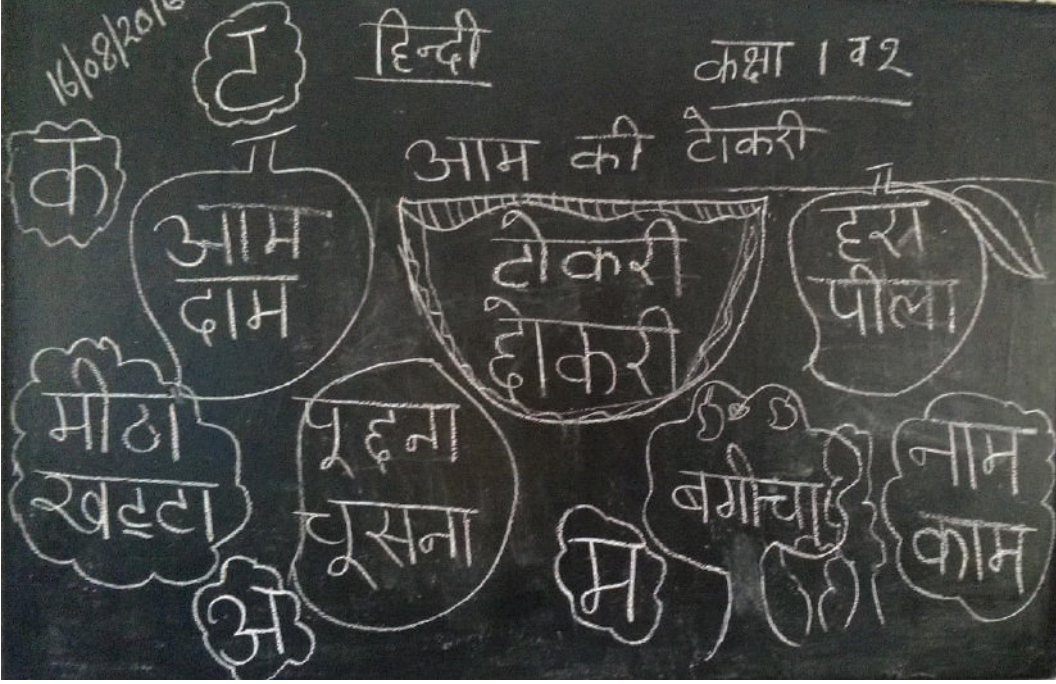 16/08/2016
ट
हिन्दी
कक्षा 1 व २
आम की टोकरी
क
आम
दाम
टोकरी
होकरी
हरा
पीला
मीठा
खट्टा
पूछना
चूसना
बगीचा
नाम
काम
अ
म